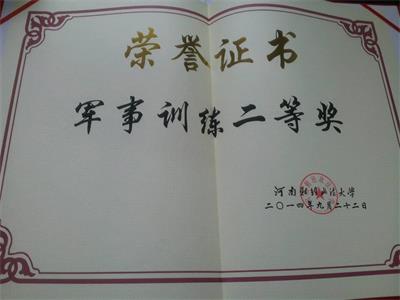 荣誉证书
军事训练二等奖
河南财经政法大学
二〇一四年九月二十二日